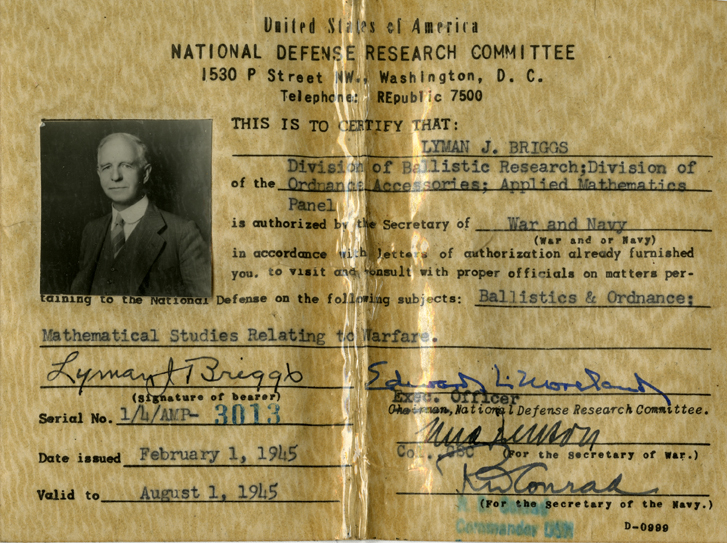 United States of America
NATIONAL DEFENSE RESEARCH COMMITTEE
1530 P Street NW., Washington, D. C.
Telephone: REpublic 7500
THIS IS TO CERTIFY THAT:
LYMAN J. BRIGGS
Division of Ballistic Research;Division of
of the Ordnance Accessories; Applied Mathematics
Panel
is authorized by the Secretary of War and Navy
(War and or Navy)
in accordance with letters of authorization already furnished
you, to visit and consult with proper officials on matters per-
taining to the National Defense on the following subjects: Ballistics & Ordnance;
Mathematical Studies Relating to Warfare.
Lyman J Briggs
Edward L. Moreland
(signature of bearer)
Exec. Officer
Chairman, National Defense Research Committee.
Serial No. 1/4/AMP- 3013
Date issued February 1, 1945
(For the Secretary of War.)
Valid to August 1, 1945
Conrad
(For the Secretary of the Navy.)
Commander USN
D-0999